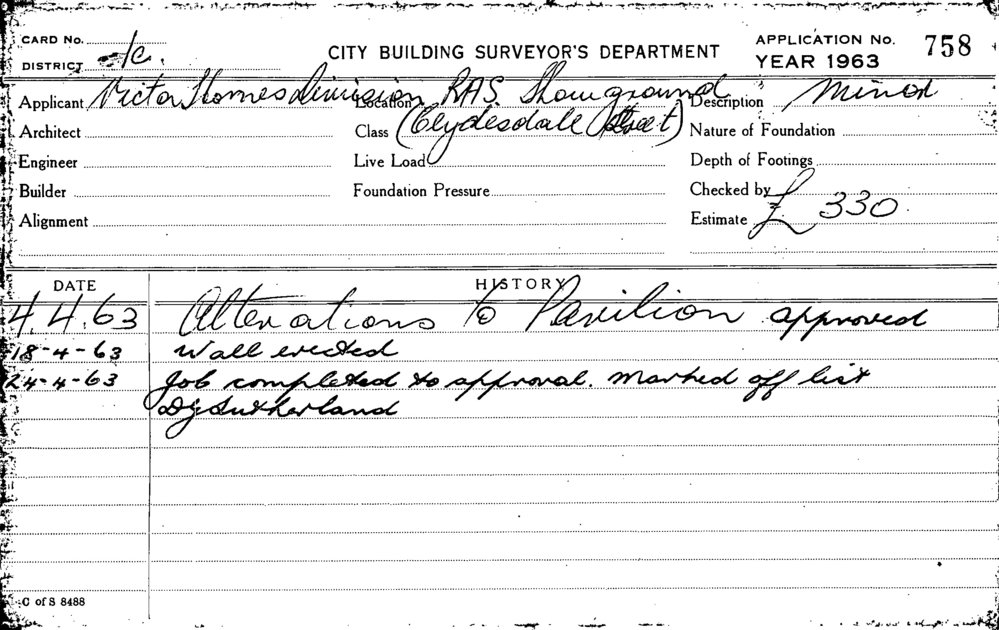 CARD No.
DISTRICT
CITY BUILDING SURVEYOR'S DEPARTMENT
APPLICATION No. 758
YEAR 1963
Applicant Victor Homes Division Location RAS. Showground Description Minor
Architect Class (Clydesdale Street) Nature of Foundation
Engineer Live Load Depth of Footings
Builder Foundation Pressure Checked by
Alignment Estimate £ 330
DATE HISTORY
4.4.63 Alterations to Pavilion approved
18-4-63 Wall erected
24-4-63 Job completed to approval. Marked off list
Sutherland
C of S 8488